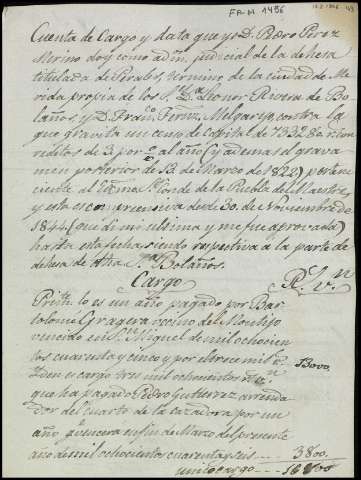 FR-M 1496
Cuenta de Cargo y data que yo D. Pedro Perez
Merino doy como adm. judicial de la dehesa
titulada de Perales, termino de la ciudad de Me
rida propia de los S.res D.a Leonor Rivera de Bo
laños y D. Fran.co Fern.z Melgarejo, contra la
que gravita un censo de capital de 733280 r.s
reditos de 3 por % al año (y ademas el grava
men posterior de 13 de Marzo de 1822) perte
neciente al Ex.mo S.r Conde de la Puebla del Maestre
y esta es comprensiva desde 30 de Noviembre de
1844 (que di mi ultima y me fue aprobada)
hasta esta fecha siendo respectiva a la parte de
dehesa de dha S.ra Bolaños.
Cargo R.s v.n
Prim.te lo es un año pagado por Bar
tolomé Gragera vecino del Montijo
vencido en S.n Miguel de mil ochocien
tos cuarenta y cinco y por el trece mil r.s 13000
Iden es cargo tres mil ochocientos r.s v.n
que ha pagado Pedro Gutierrez arrenda
dor del cuarto de la cazadora por un
año q.e vencera en fin de Marzo del presente
año de mil ochocientos cuarenta y seis 3800
16800